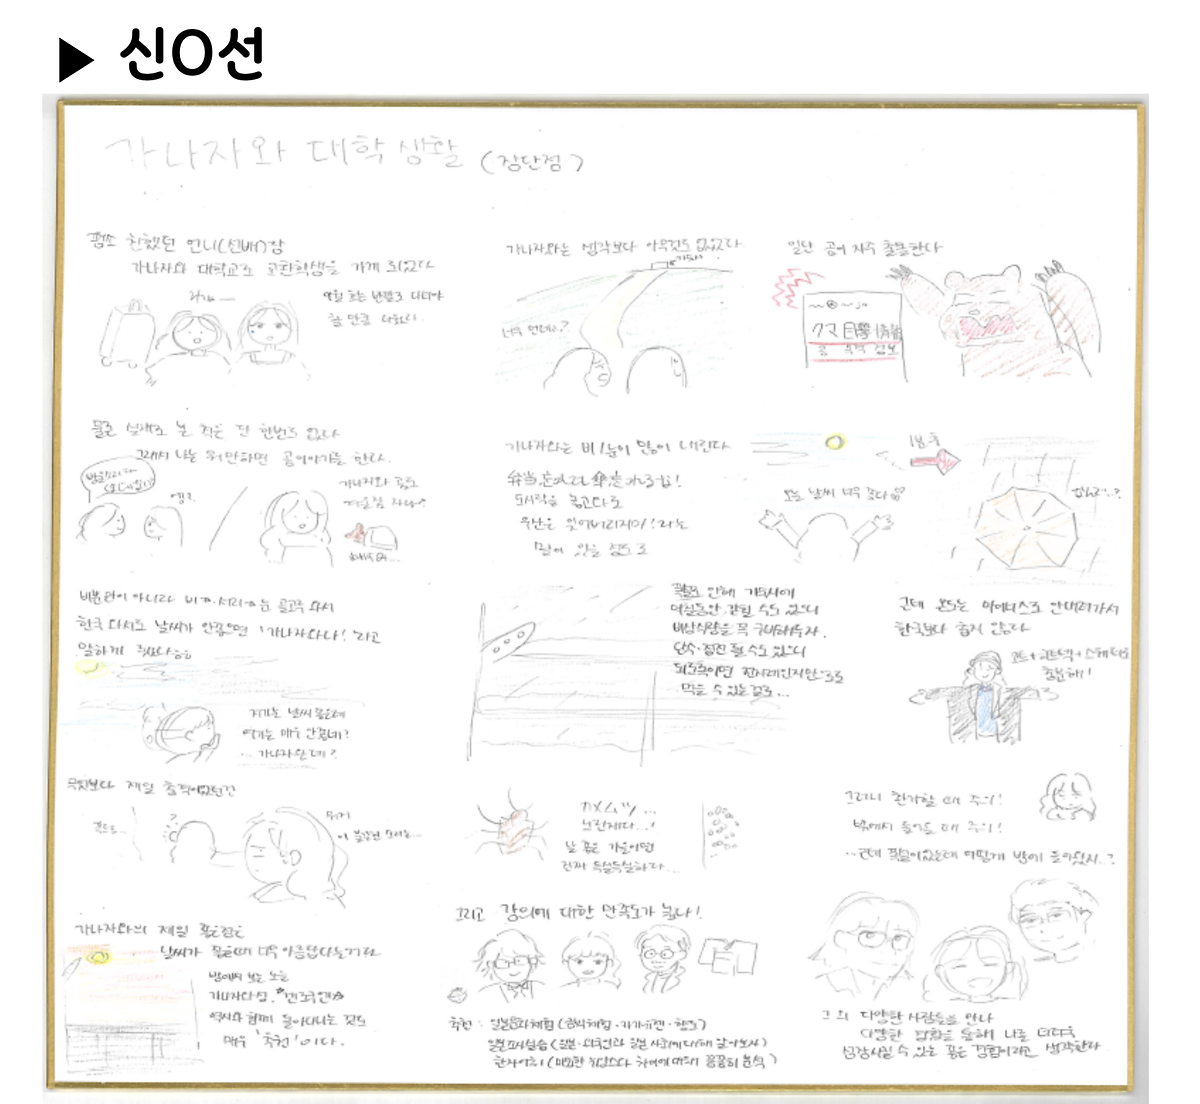 ▶ 신O선
가나자와 대학 생활 (장단점)
평소 친했던 언니(선배)랑
가나자와 대학교로 교환학생을 가게 되었다
가나자와는 생각보다 아무것도 없었다
기숙사
너무 언덕인데?
일단 곰이 자주 출몰한다
クマ目撃情報
곰 목격 정보
물론 실제로 본 적은 단 한번도 없다
그래서 나는 뭐만하면 곰이야기를 한다.
가나자와 곰도
겨울잠 자나?
가나자와는 비/눈이 많이 내린다
弁当忘れても傘忘れるな!
도시락을 놓고가도
우산은 잊어버리지마! 라는
말이 있을 정도로
오늘 날씨 너무 좋다
1분 후
비뿐만이 아니라
골고루 와서
한국 와서도 날씨가 안좋으면 '가나자와다!' 라고
말하게 되었다
여기는 매우 안좋네?
...가나자와인데?
폭설로 인해 기숙사에
며칠동안 갇힐 수도 있으니
비상식량을 꼭 구비해두자.
단수·정전 될 수도 있으니
되도록이면 전자레인지 안
먹을 수 있는 걸로...
근데 온도는 마이너스로 안내려가서
한국보다 춥지 않다
코트+히트텍+스웨터로
충분해!
무엇보다 제일 충격이었던건
カメムシ...
노린재다...!
날 좋은 가을이면
진짜 득실득실하다...
그러니 환기할 때 주의!
밖에서 들어올 때 주의!
...근데 어떻게 방에 들어왔지..?
가나자와의 제일 좋은점은
날씨가 좋을때 너무 아름답다는거다
방에서 보는 노을
가나자와성, 켄로쿠엔
역사와 함께 돌아다니는 것도
매우 '추천'이다.
그리고 강의에 대한 만족도가 높다!
추천 : 일본문화체험 (
일본사정실습 (일본·외국인과 일본 사회에 대해 알아보자)
한자어휘 (미묘한 뉘앙스나 차이에 대해 꼼꼼히 분석)
그 외 다양한 사람들을 만나
다양한 경험을 통해 나를 더더욱
성장시킬 수 있는 좋은 경험이라고 생각한다